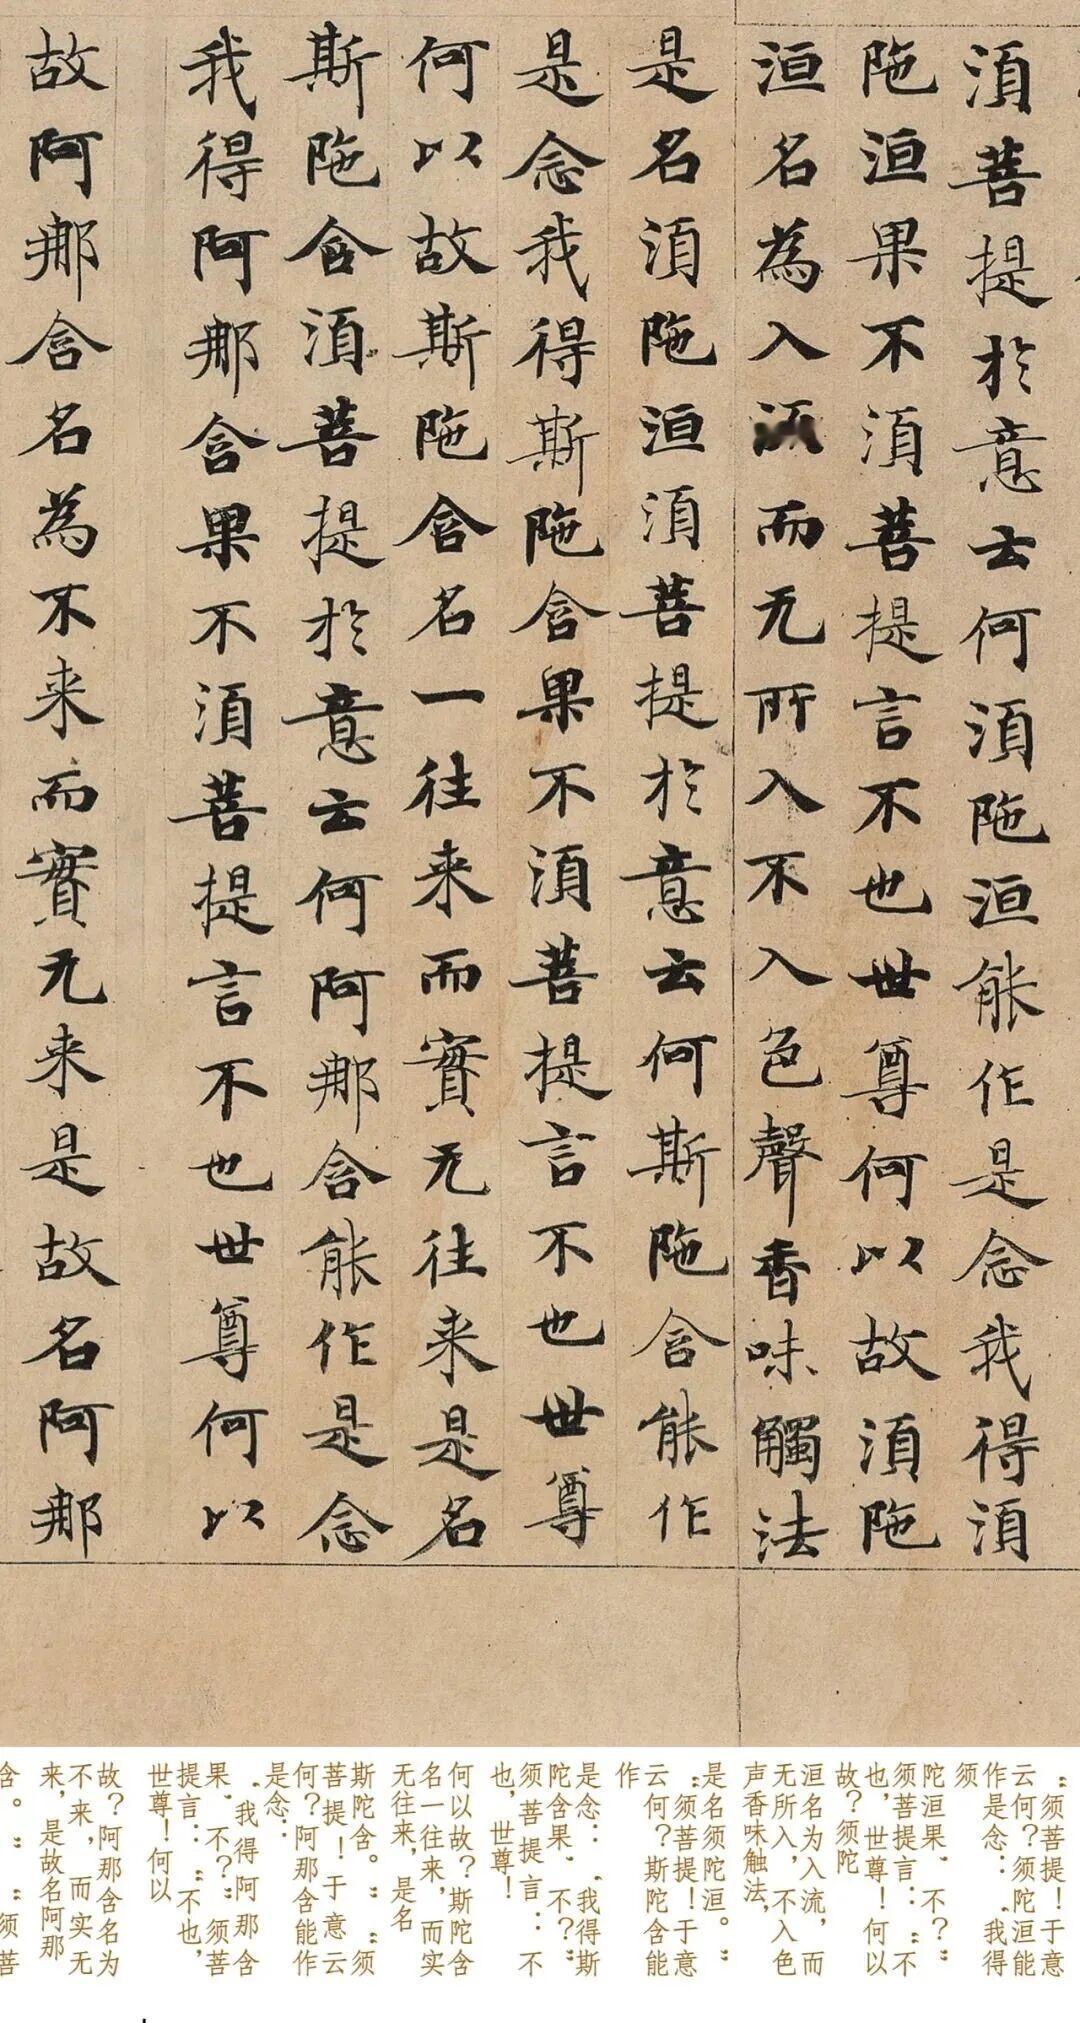 須菩提於意云何須陁洹能作是念我得須
陁洹果不須菩提言不也世尊何以故須陁
洹名為入流而无所入不入色聲香味觸法
是名須陁洹須菩提於意云何斯陁含能作
是念我得斯陁含果不須菩提言不也世尊
何以故斯陁含名一往来而實无往来是名
斯陁含須菩提於意云何阿那含能作是念
我得阿那含果不須菩提言不也世尊何以
故阿那含名為不来而實无来是故名阿那
“须菩提！于意
云何？须陀洹能
作是念：‘我得
须
陀洹果’不？”
须菩提言：“不
也，世尊！何以
故？须陀
洹名为入流，而
无所入，不入色
声香味触法，
是名须陀洹。”
“须菩提！于意
云何？斯陀含能
作
是念：‘我得斯
陀含果’不？”
须菩提言：“不
也，世尊！
何以故？斯陀含
名一往来，而实
无往来，是名
斯陀含。”“须
菩提！于意云
何？阿那含能作
是念：
‘我得阿那含
果’不？”须菩
提言：“不也，
世尊！何以
故？阿那含名为
不来，而实无
来，是故名阿那
含。”“须菩